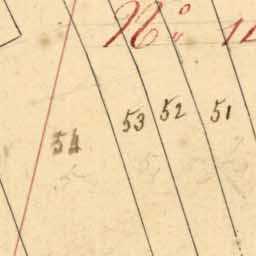 No 11
54 53 52 51